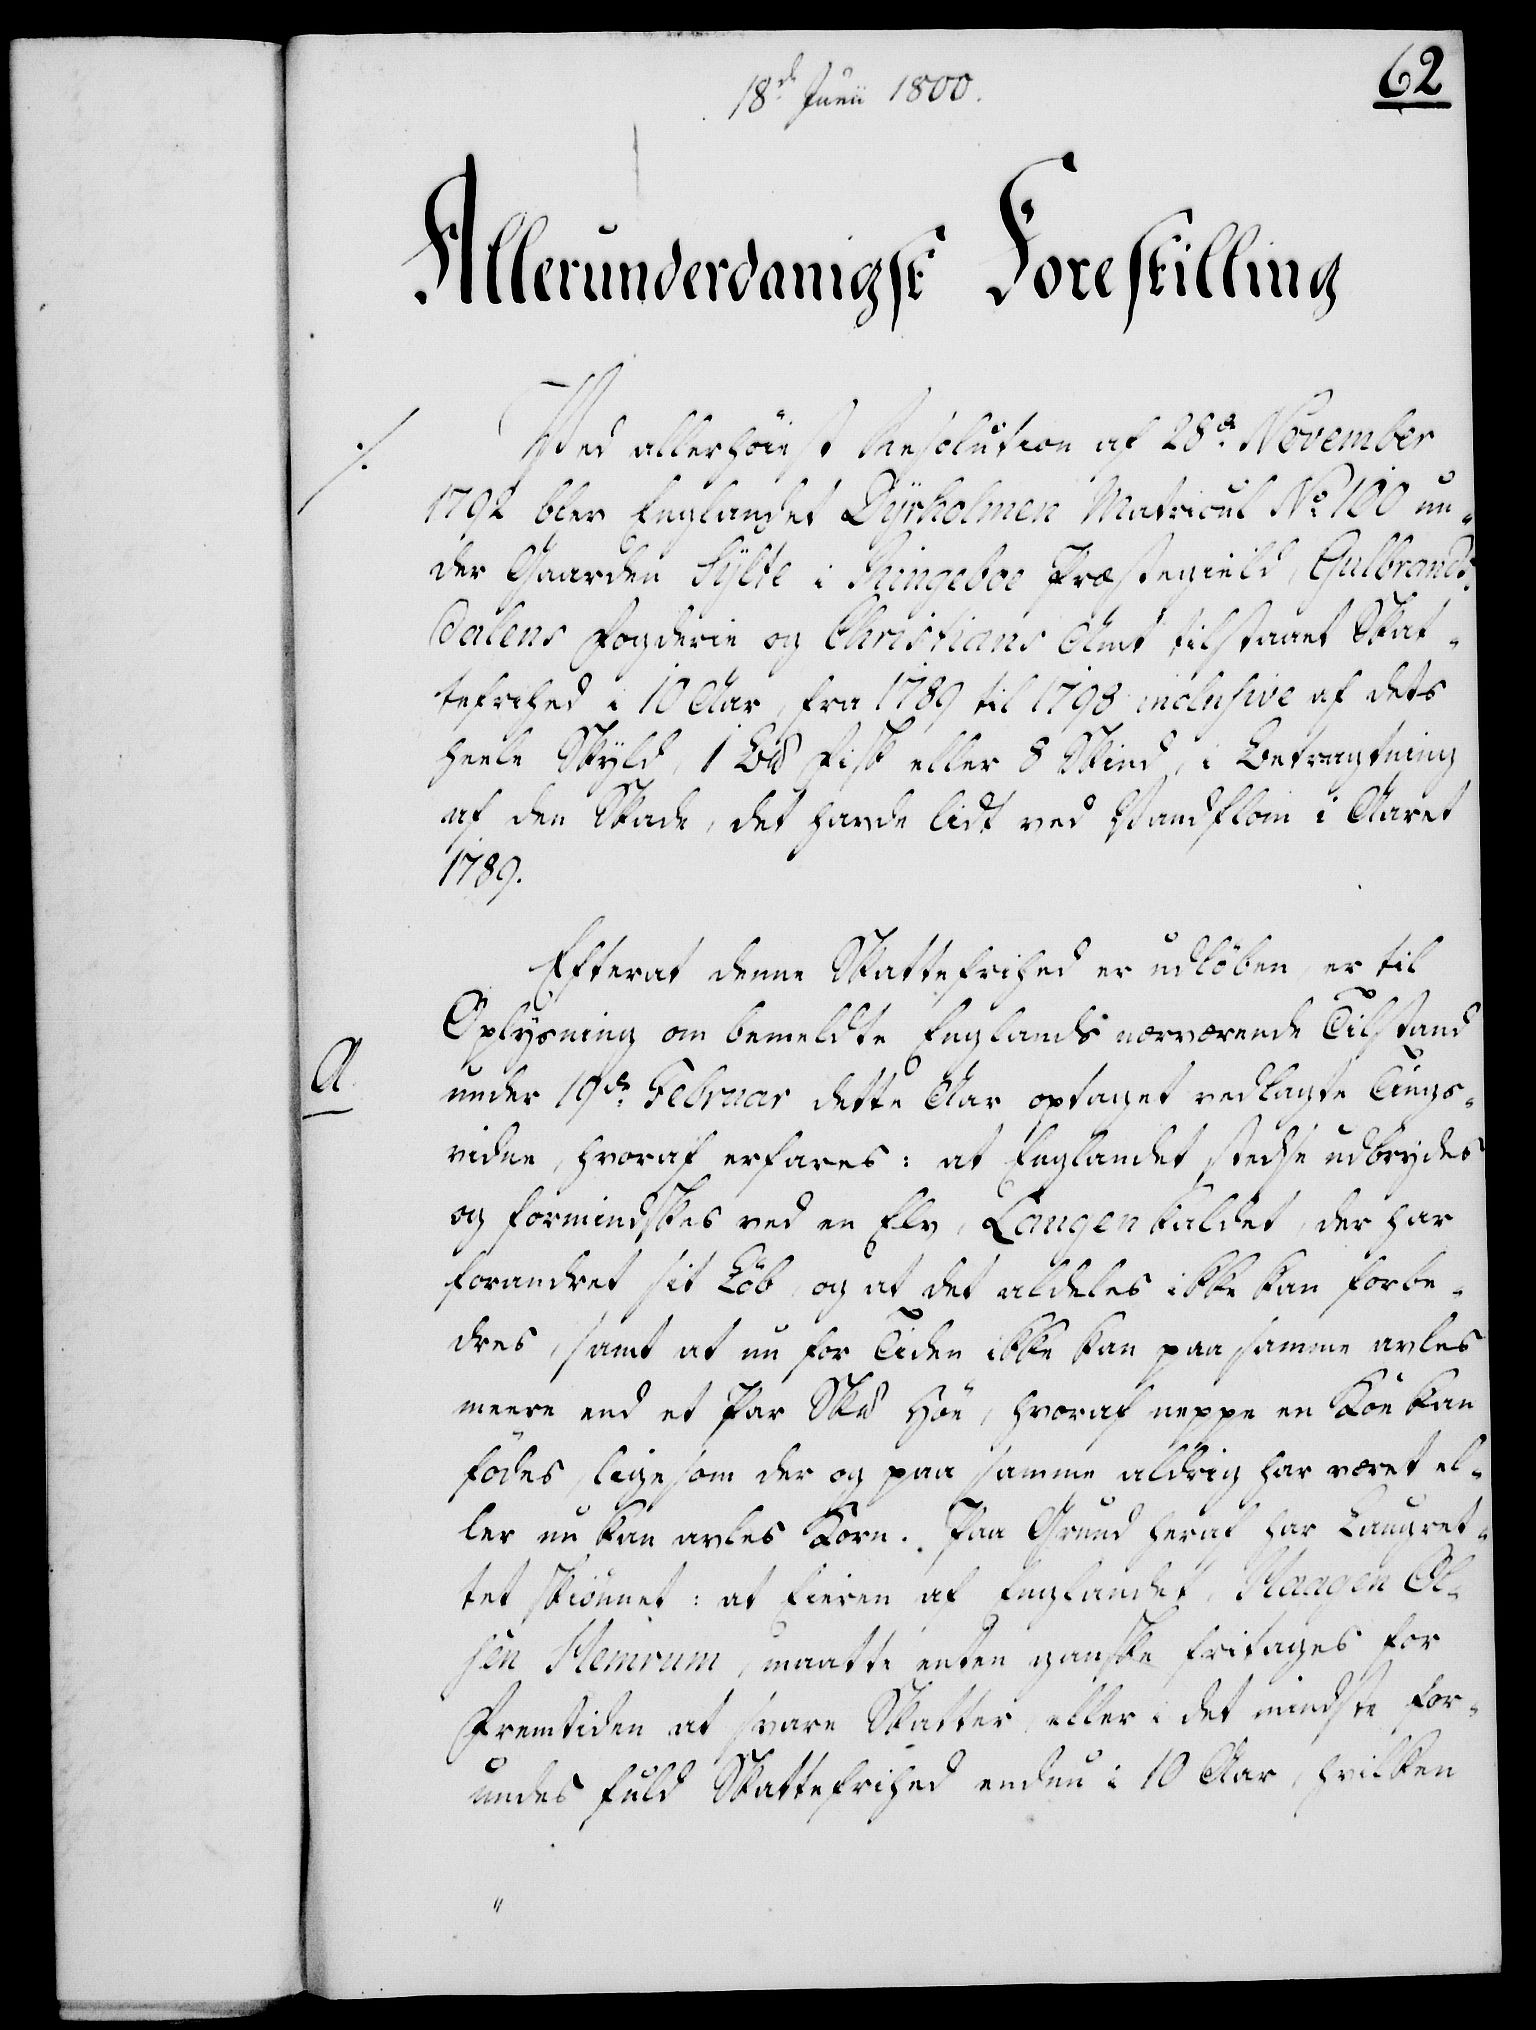 62
18de Junii 1800.
Allerunderdanigst Forestilling
Ved allerhöiest Resolution af 28de November
1792 blev Englandet Dyrholmen Matricul No 160 un-
der Gaarden Sylte i Ringeboe Præstegield, Gulbrands-
dalens Fogderie og Christians Amt tilstaaet Skat-
tefrihed i 10 Aar, fra 1789 til 1798 inclusive af dets
heele Skyld, 1 Bd Fisk eller 8 Skind, i Betragtning
af den Skade, det havde lidt ved Vandflom i Aaret
1789.
Efterat denne Skattefrihed er udlöben, er til
Oplysning om bemeldte Englands nærværende Tilstand
A
under 19de Februar dette Aar optaget vedlagte Tings-
vidne, hvoraf erfares: at Englandet stedse udbrydes
og formindskes ved en Elv, Laugen kaldet, der har
forandret sit Löb, og at det aldeles ikke kan forbe-
dres, samt at nu for Tiden ikke kan paa samme avles
meere end et Par Skd Höe, hvoraf neppe en Koe kan
födes, ligesom der og paa samme aldrig har været el-
ler nu kan avles Korn. Paa Grund heraf har Laugret-
tet skiönnet: at Eieren af Englandet, Haagen Ol-
sen Hemrum, maatte enten ganske fritages for
Fremtiden at svare Skatter, eller i det mindste for-
undes fuld Skattefrihed endnu i 10 Aar, hvilken